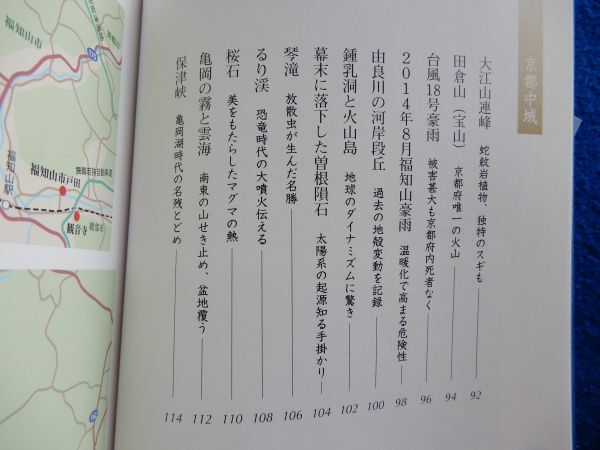 京都中域
大江山連峰 蛇紋岩植物、独特のスギも 92
田倉山（宝山） 京都府唯一の火山 94
台風18号豪雨 被害甚大も京都府内死者なく 96
2014年8月福知山豪雨 温暖化で高まる危険性 98
由良川の河岸段丘 過去の地殻変動を記録 100
鍾乳洞と火山島 地球のダイナミズムに驚き 102
幕末に落下した曽根隕石 太陽系の起源知る手掛かり 104
琴滝 放散虫が生んだ名勝 106
るり渓 恐竜時代の大噴火伝える 108
桜石 美をもたらしたマグマの熱 110
亀岡の霧と雲海 南東の山せき止め、盆地覆う 112
保津峡 亀岡湖時代の名残とどめ 114
福知山市
福知山駅
福知山市戸田
観音寺
綾部市